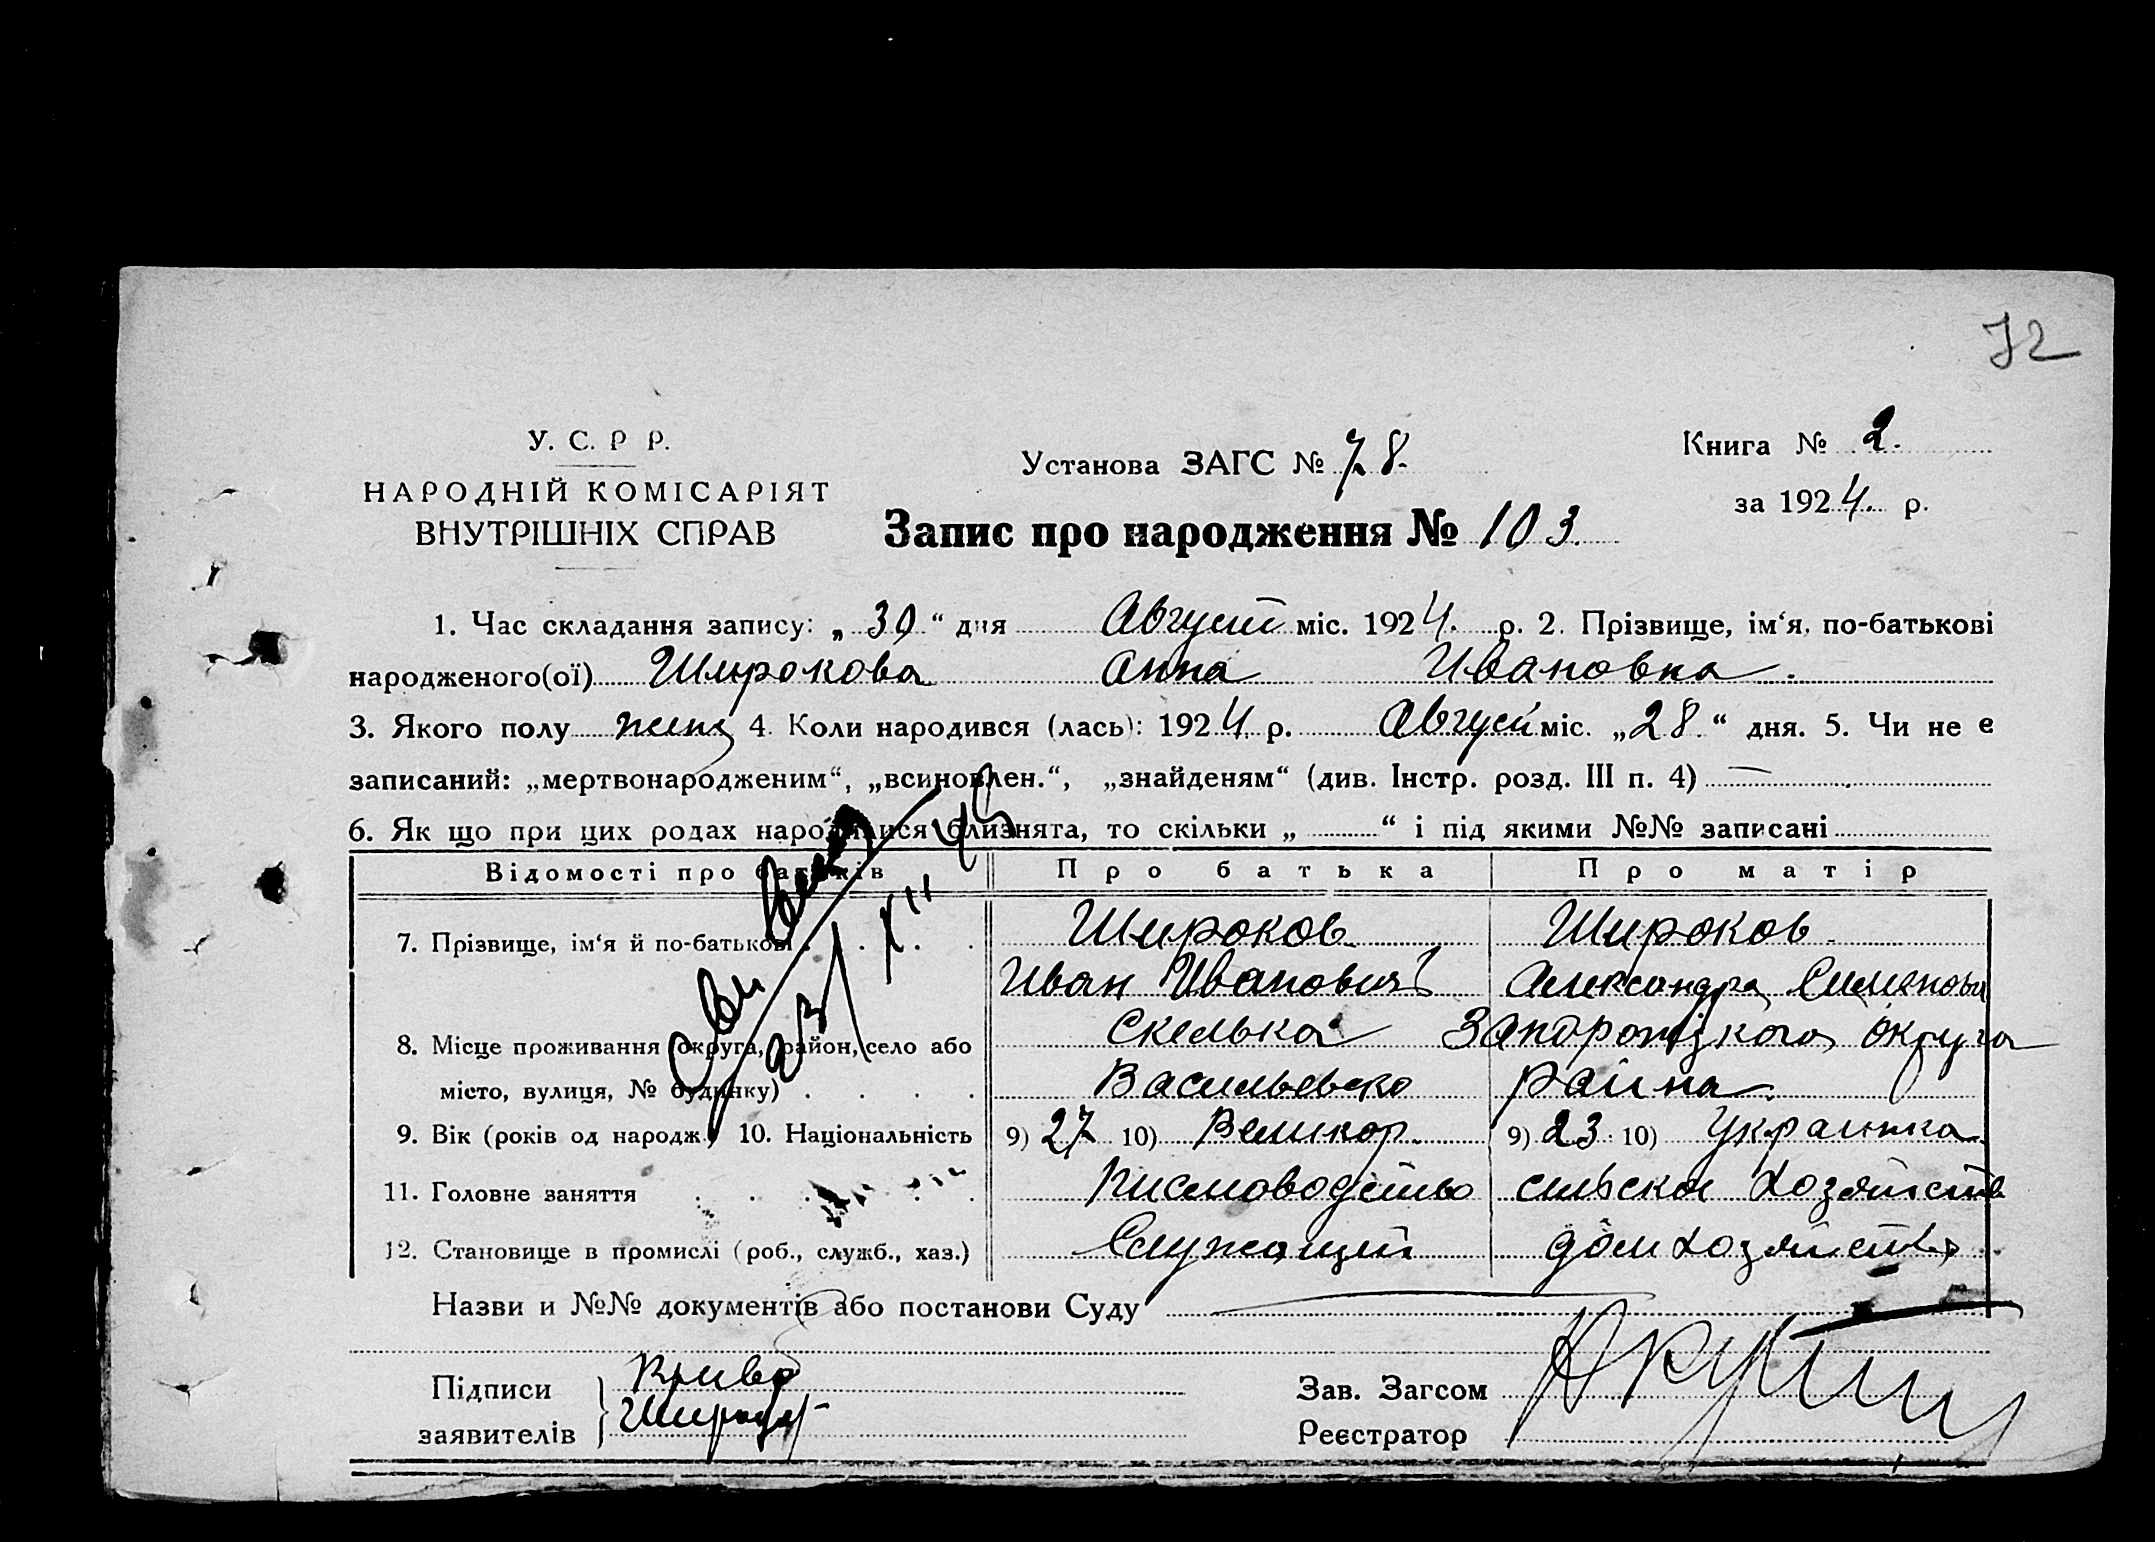 72
У. С. Р Р.
НАРОДНІЙ КОМІСАРІЯТ
ВНУТРІШНІХ СПРАВ
Установа ЗАГС № 78.
Книга № 2.
за 1924. р.
Запис про народження № 103.
1. Час складання запису: „ 30 “ дня Август міс. 1924. р. 2. Прізвище, ім‘я, по-батькові
народженого(ої) Широкова Анна Ивановна.
3. Якого полу женс 4. Коли народився (лась): 1924 р. Август міс. „28.“ дня. 5. Чи не є
записаний: „мертвонародженим“, „всиновлен.“, „знайденям“ (див. Інстр. розд. III п. 4) —
6. Як що при цих родах народилися близнята, то скільки „ “ і під якими №№ записані
Відомості про батьків Про батька Про матір
7. Прізвище, ім‘я й по-батькові Широков Широков
Иван Иванович Александра Семенов
8. Місце проживання (округа, район, село або Скелька Запорожского округа
місто, вулиця, № будинку) Васильевско района.
9. Вік (років од народж.) 10. Національність 9) 27 10) Великор. 9) 23. 10) Украинка
11. Головне заняття Писмоводство сельское хозяйств
12. Становище в промислі (роб., служб., хаз.) Служащий домхозяйств
Назви и №№ документів або постанови Суду
Підписи
заявителів
Зав. Загсом
Реєстратор